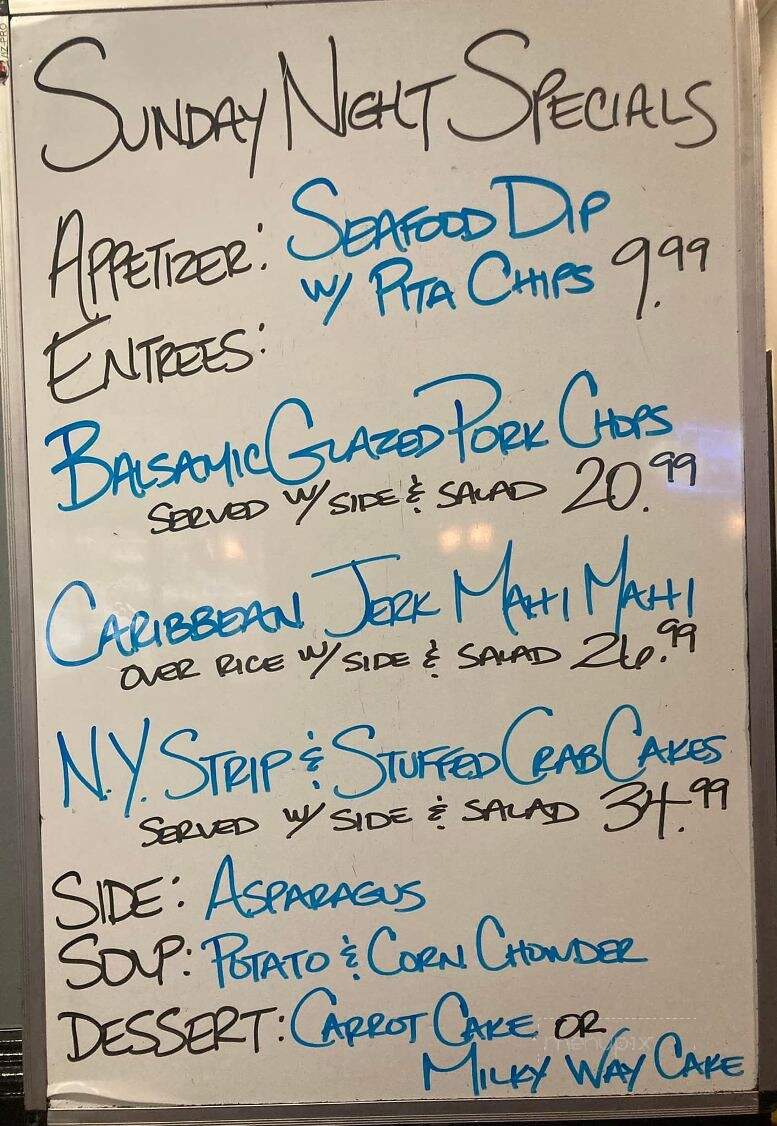 SUNDAY NIGHT SPECIALS
APPETIZER: SEAFOOD DIP
W/ PITA CHIPS 9.99
ENTREES:
BALSAMIC GLAZED PORK CHOPS
SERVED W/ SIDE & SALAD 20.99
CARIBBEAN JERK MAHI MAHI
OVER RICE W/ SIDE & SALAD 26.99
N.Y. STRIP & STUFFED CRAB CAKES
SERVED W/ SIDE & SALAD 34.99
SIDE: ASPARAGUS
SOUP: POTATO & CORN CHOWDER
DESSERT: CARROT CAKE OR
menupix
MILKY WAY CAKE